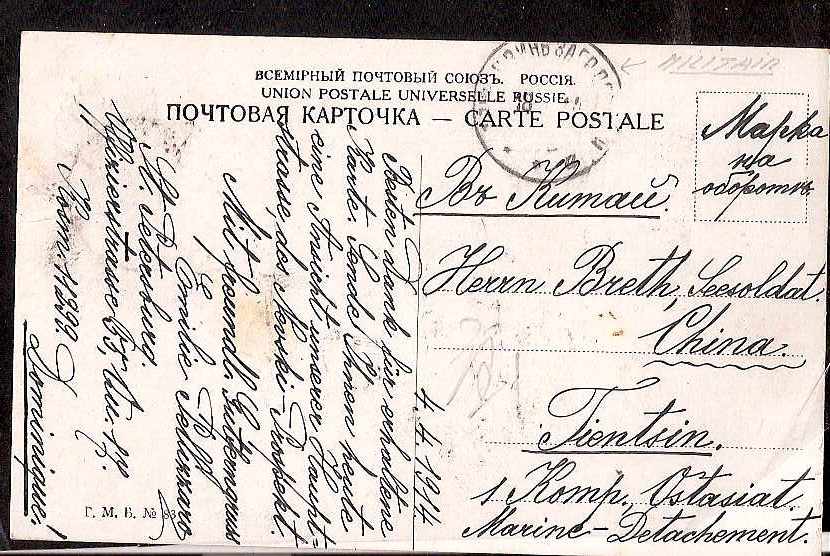 MILITAIR
ВСЕМІРНЫЙ ПОЧТОВЫЙ СОЮЗЪ. РОССІЯ.
UNION POSTALE UNIVERSELLE RUSSIE.
ПОЧТОВАЯ КАРТОЧКА — CARTE POSTALE
Марка
на
оборотѣ
Въ Китай.
Herrn Breth, Seesoldat.
China
Tientsin.
1 Komp. Ostasiat.
Marine-Detachement.
4.4.1914
Besten dank für erhaltene
Karte. Sende Ihnen heute
eine Ansicht unserer Haupt-
strasse, des Newski-Prospekt.
Mit freundl.
Emilie
St. Petersburg.
Dominique!
Г. М. Б. №